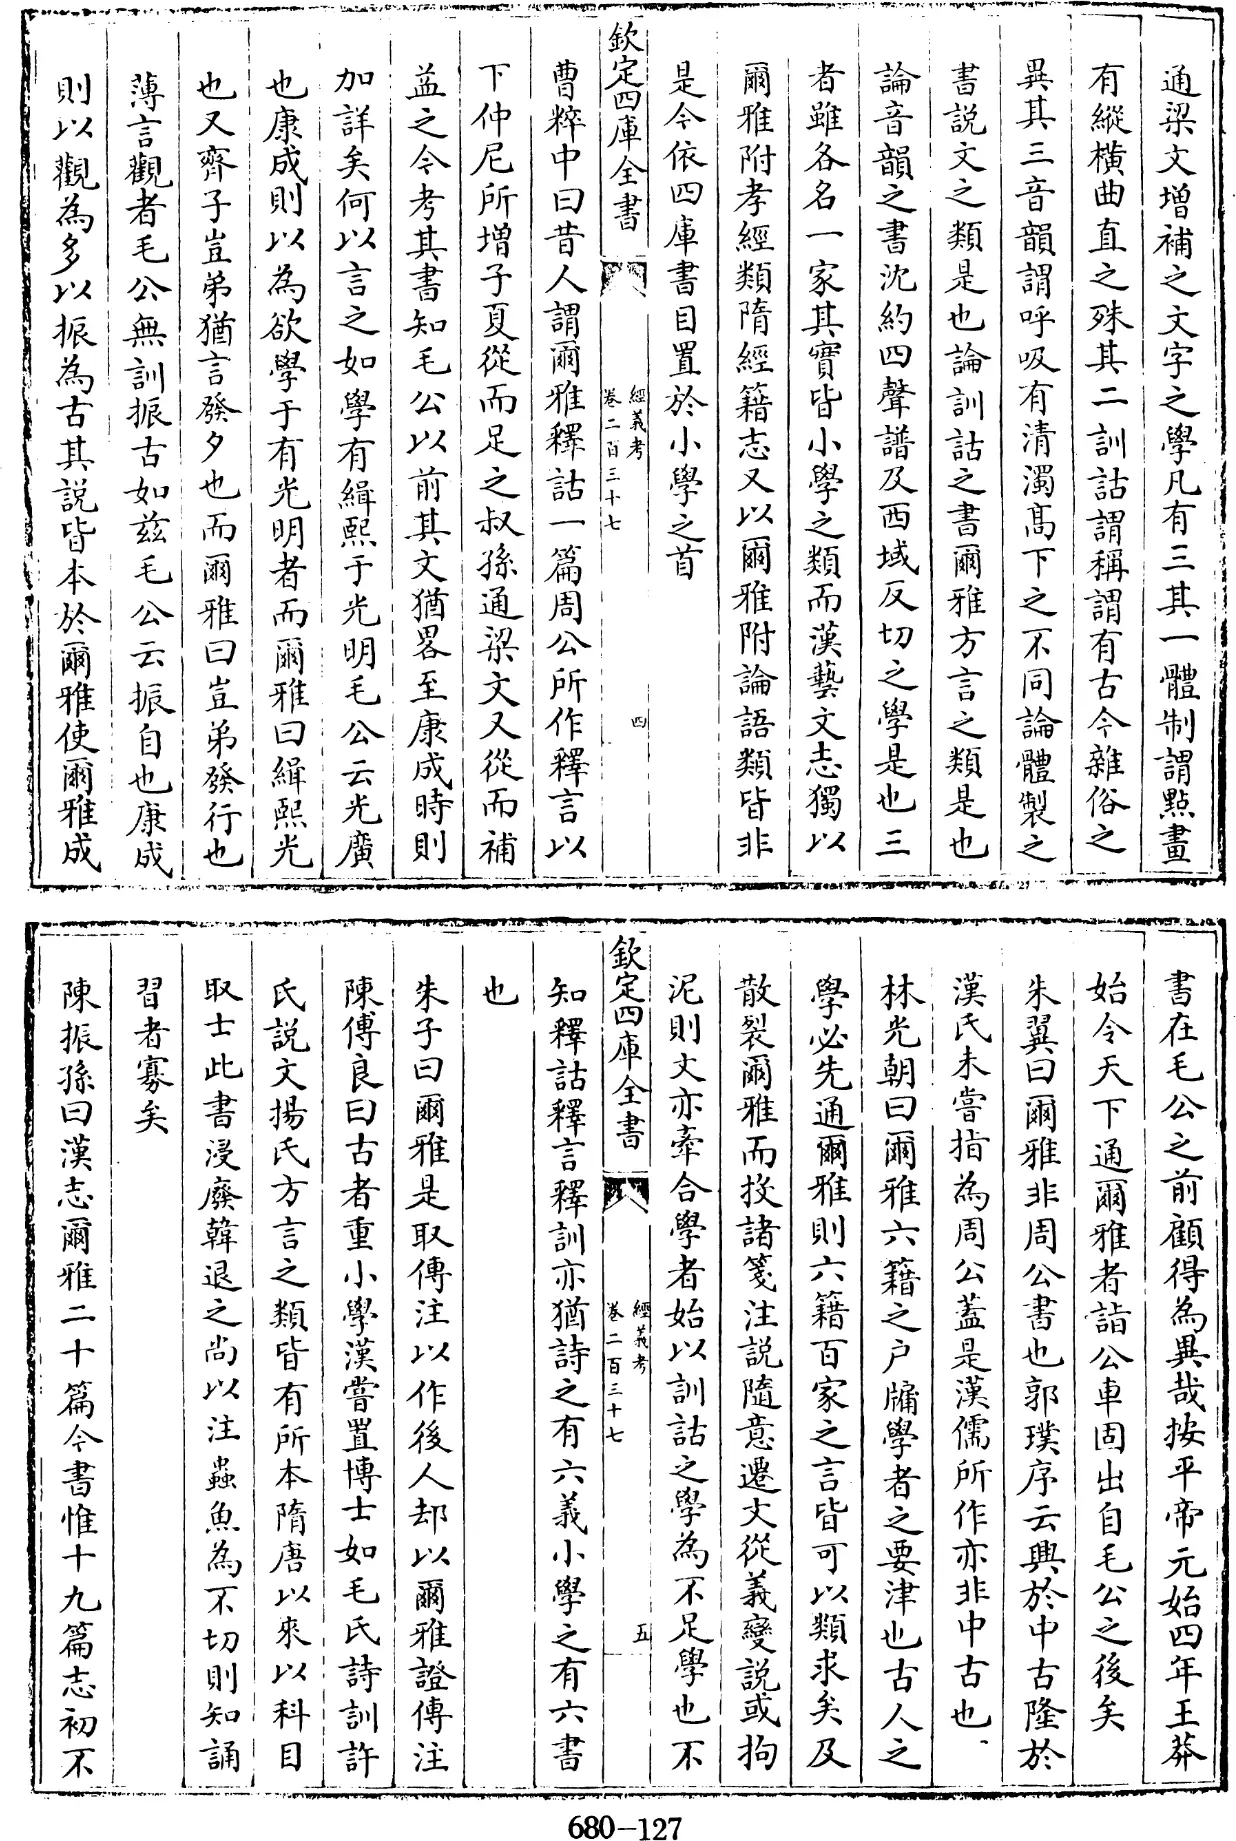 通梁文增補之文字之學凡有三其一體制謂點畫
有縱橫曲直之殊其二訓詁謂稱謂有古今雜俗之
異其三音韻謂呼吸有清濁髙下之不同論體製之
書説文之類是也論訓詁之書爾雅方言之類是也
論音韻之書沈約四聲譜及西域反切之學是也三
者雖各名一家其實皆小學之類而漢藝文志獨以
爾雅附孝經類隋經籍志又以爾雅附論語類皆非
是今依四庫書目置於小學之首
欽定四庫全書
經義考
卷二百三十七
四
曹粹中曰昔人謂爾雅釋詁一篇周公所作釋言以
下仲尼所増子夏從而足之叔孫通梁文又從而補
益之今考其書知毛公以前其文猶畧至康成時則
加詳矣何以言之如學有緝熙于光明毛公云光廣
也康成則以為欲學于有光明者而爾雅曰緝熙光
也又齊子豈弟猶言發夕也而爾雅曰豈弟發行也
薄言觀者毛公無訓振古如兹毛公云振自也康成
則以觀為多以振為古其説皆本於爾雅使爾雅成
書在毛公之前顧得為異哉按平帝元始四年王莽
始令天下通爾雅者詣公車固出自毛公之後矣
朱翼曰爾雅非周公書也郭璞序云興於中古隆於
漢氏未嘗指為周公蓋是漢儒所作亦非中古也
林光朝曰爾雅六籍之户牖學者之要津也古人之
學必先通爾雅則六籍百家之言皆可以類求矣及
散裂爾雅而投諸箋注説隨意遷文從義變説或拘
泥則文亦牽合學者始以訓詁之學為不足學也不
欽定四庫全書
經義考
卷二百三十七
五
知釋詁釋言釋訓亦猶詩之有六義小學之有六書
也
朱子曰爾雅是取傳注以作後人却以爾雅證傳注
陳傅良曰古者重小學漢嘗置博士如毛氏詩訓許
氏説文揚氏方言之類皆有所本隋唐以來以科目
取士此書浸廢韓退之尚以注蟲魚為不切則知誦
習者寡矣
陳振孫曰漢志爾雅二十篇今書惟十九篇志初不
680-127